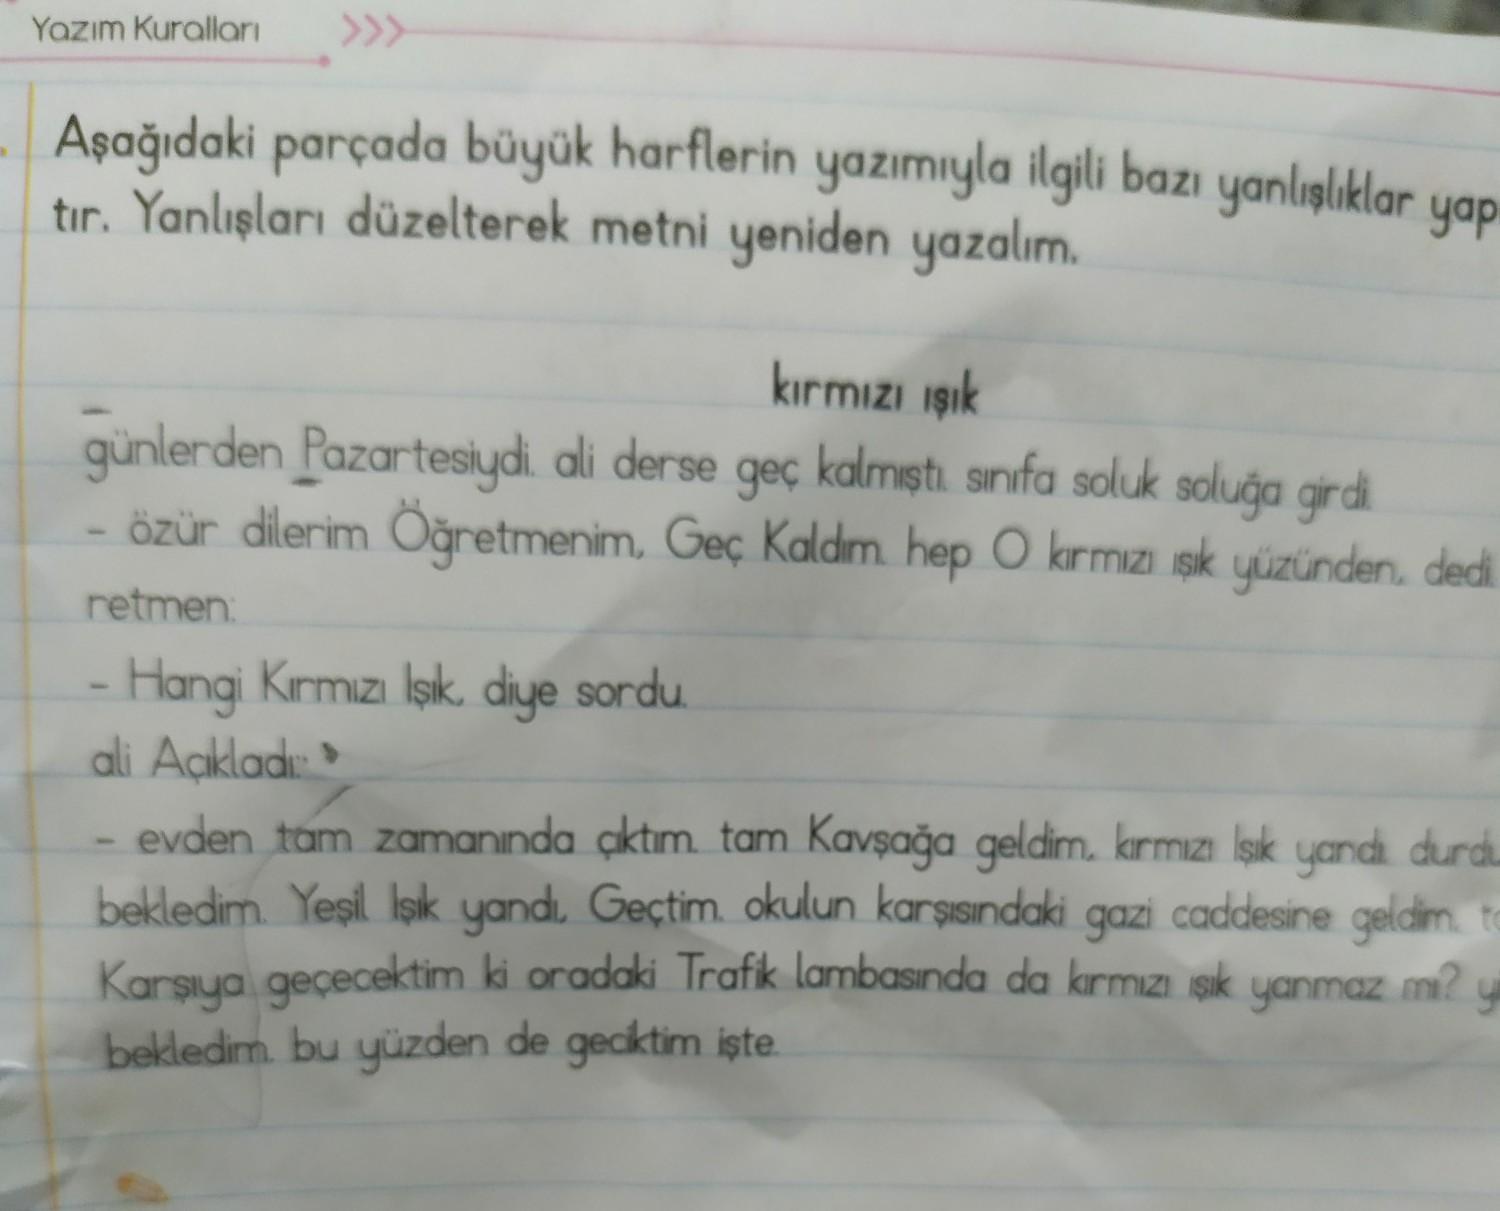 Yazım Kuralları
Aşağıdaki parçada büyük harflerin yazımıyla ilgili bazı yanlışlıklar yap
tır. Yanlışları düzelterek metni yeniden yazalım.
kırmızı ışık
günlerden Pazartesiydi. ali derse geç kalmıştı. sınıfa soluk soluğa girdi.
- özür dilerim Öğretmenim, Geç Kaldım. hep O kırmızı ışık yüzünden, dedi.
retmen:
- Hangi Kırmızı Işık, diye sordu.
ali Açıkladı:
- evden tam zamanında çıktım. tam Kavşağa geldim, kırmızı Işık yandı. durdu
bekledim. Yeşil Işık yandı, Geçtim. okulun karşısındaki gazi caddesine geldim.
Karşıya geçecektim ki oradaki Trafik lambasında da kırmızı ışık yanmaz mı?
bekledim. bu yüzden de geciktim işte.